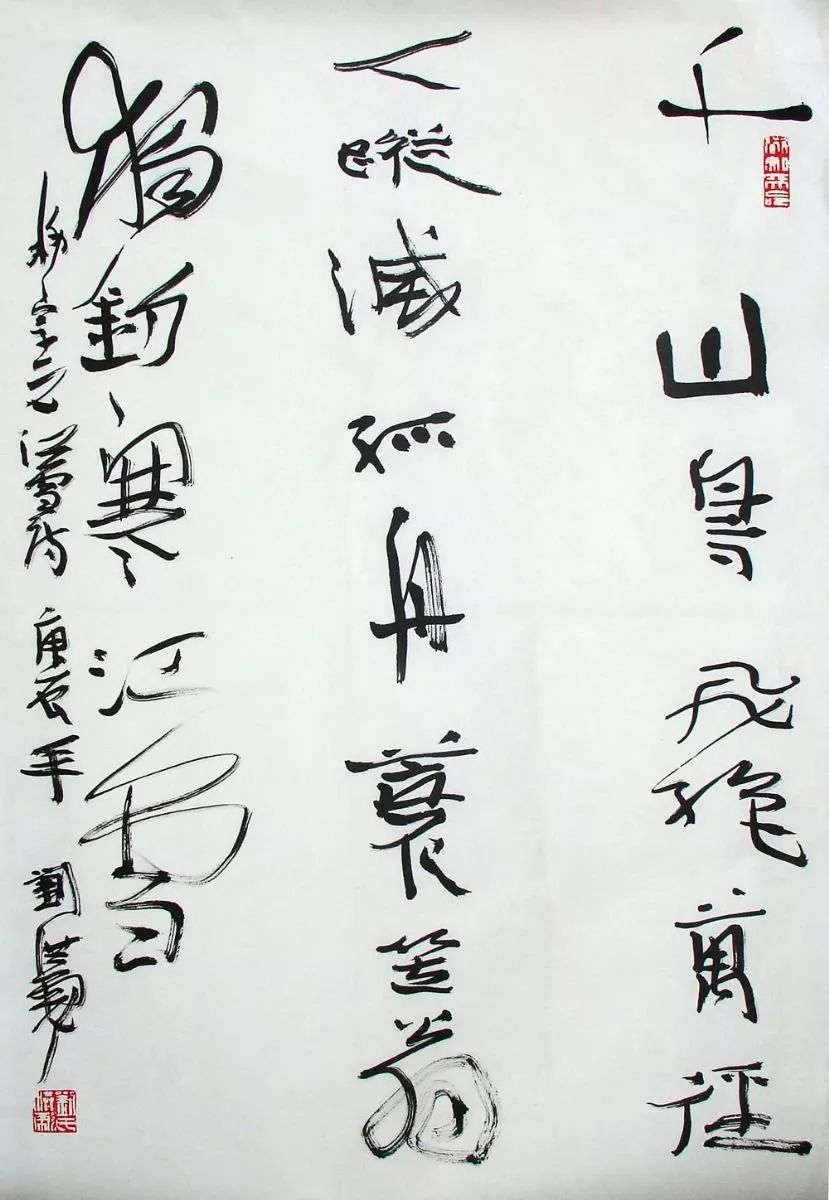 千山鳥飛絶萬徑
人蹤滅孤舟蓑笠翁
獨釣寒江雪
柳宗元江雪詩 庚辰年 劉洪彪